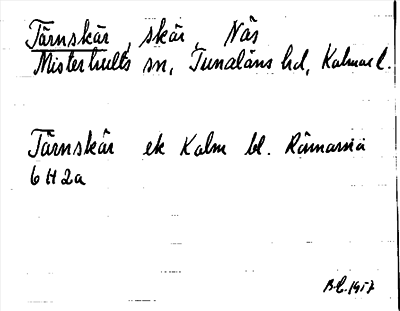 Tärnskär, skär, Näs
Misterhults sn, Tunaläns hd, Kalmar l.
Tärnskär ek Kalm bl.
6H2a
1957